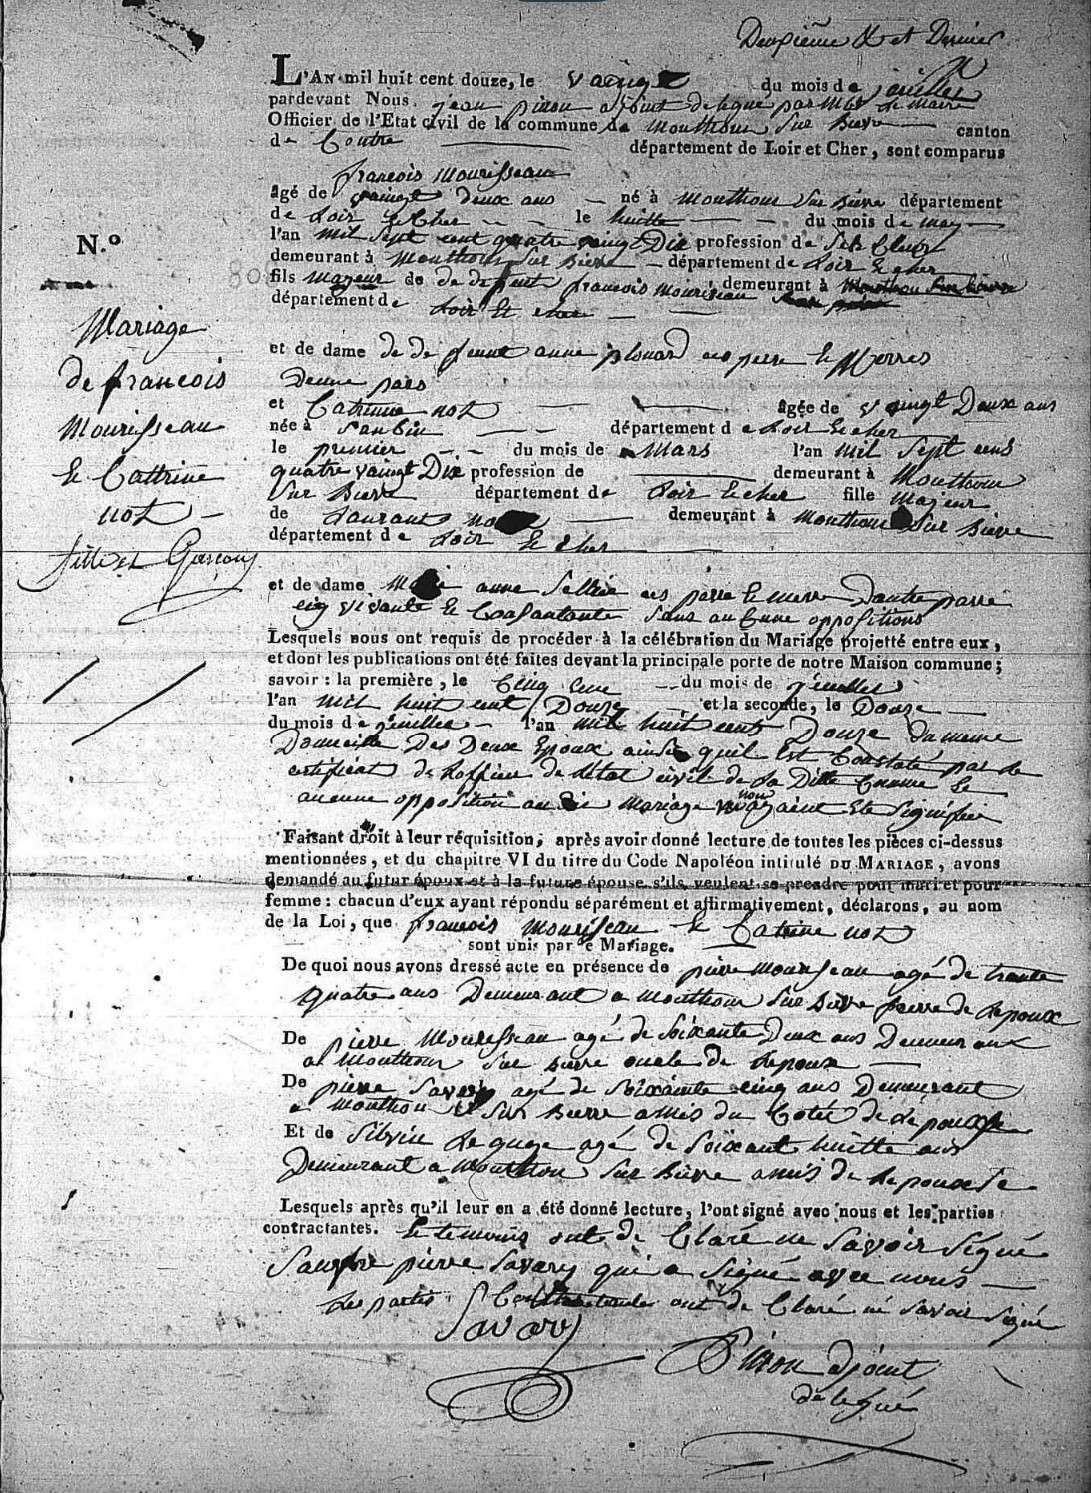 Deuxième et Dernier
L'AN mil huit cent douze, le vaingt du mois de juilles
pardevant Nous jean pinon adjoint delegué par Mr Le Maire
Officier de l'Etat civil de la commune de Monthou Sur Bievre canton
de Contre département de Loir et Cher, sont comparus
francois Mourisseau
âgé de vaingt deux ans né à Monthou Sur Bievre département
de Loir Et Cher le huitte du mois de may
l'an Mil Sept cent quatre vaingt Dix profession de
demeurant à Monthou Sur Bievre département de Loir Et cher
fils Majeur de de defeunt francois Mourisseau demeurant à
département de Loir Et cher
et de dame de de feunt anne plouard ces perre Et Merres
Deune pars
et Catrinne not âgée de vaingt Deux ans
née à Sanbin département de Loir Et cher
le premier du mois de Mars l'an Mil Sept cens
quatre vaingt Dix profession de demeurant à Monthou
Sur Bievre département de Loir Et cher fille Majeur
de Laurant not demeurant à Monthou Sur Bievre
département de Loir Et cher
et de dame anne Sellier ces perre Et merre Dautre parre
icy vivante Et Consantante Sans aucune oppositions
Lesquels nous ont requis de procéder à la célébration du Mariage projetté entre eux,
et dont les publications ont été faites devant la principale porte de notre Maison commune;
savoir : la première, le Cinq du mois de juilles
l'an Mil huit cent Douze et la seconde, le Douze
du mois de juilles l'an Mil huit cent Douze du meme
Domicille Des Deux Epoux ainsi quil Est Constaté par Le
certificat de Loffier de Létat civil de La Ditte Commune Et
aucune opposition au Mariage non Eté Signifiée
Faisant droit à leur réquisition, après avoir donné lecture de toutes les pièces ci-dessus
mentionnées, et du chapitre VI du titre du Code Napoléon intitulé DU MARIAGE, avons
demandé au futur époux et à la future épouse s'ils veulent se prendre pour mari et pour
femme : chacun d'eux ayant répondu séparément et affirmativement, déclarons, au nom
de la Loi, que francois Mourisseau Et Catrine not
sont unis par e Mariage.
De quoi nous avons dressé acte en présence de pierre Mourisseau agé de trante
quatre ans Demeurant a Monthou Sur Bievre frerre de Lepoux
De pierre Mourisseau agé de Soixante Deux ans Demeurant
a Monthou Sur Bievre oncle de Lepoux
De pierre Savary agé de Soixante cinq ans Demeurant
a Monthou Sur Bievre amis du Coté de Lepouse
Et de Silvin agé de Soixant huitte ans
Demeurant a Monthou Sur Bievre amis de Lepouse
Lesquels après qu'il leur en a été donné lecture, l'ont signé avec nous et les parties
contractantes. Le temoins ont de Claré ne Savoir Signé
Sauf pierre Savary qui a Signé avec nous
Les parties ont de Claré né Savoir Signé
Savary
Pinon adjoint
delegué
N.º
Mariage
de francois
Mourisseau
Et Cattrine
not
fille et Garcon